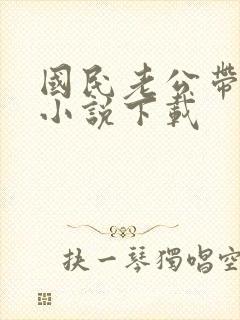 國民老公帶
小說下載
抉一琴獨唱空